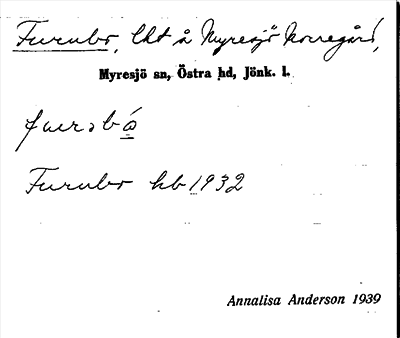 Furubo, lht å Myresjö Norregård,
Myresjö sn, Östra hd, Jönk. l.
fuerəbó̲
Furubo hb 1932
Annalisa Anderson 1939